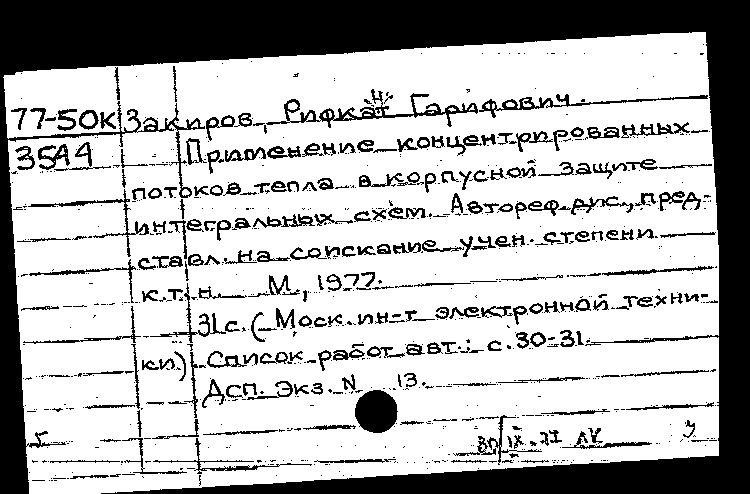 77-50К Закиров, Рифкат Гарифович.
35А4 Применение концентрированных
потоков тепла в корпусной защите
интегральных схем. Автореф. дис., пред-
ставл. на соискание учен. степени
к.т.н. М., 1977.
31с. (Моск. ин-т электронной техни-
ки). Список работ авт.: с. 30-31.
Дсп. Экз. N 13.
5 IX ЛК 3